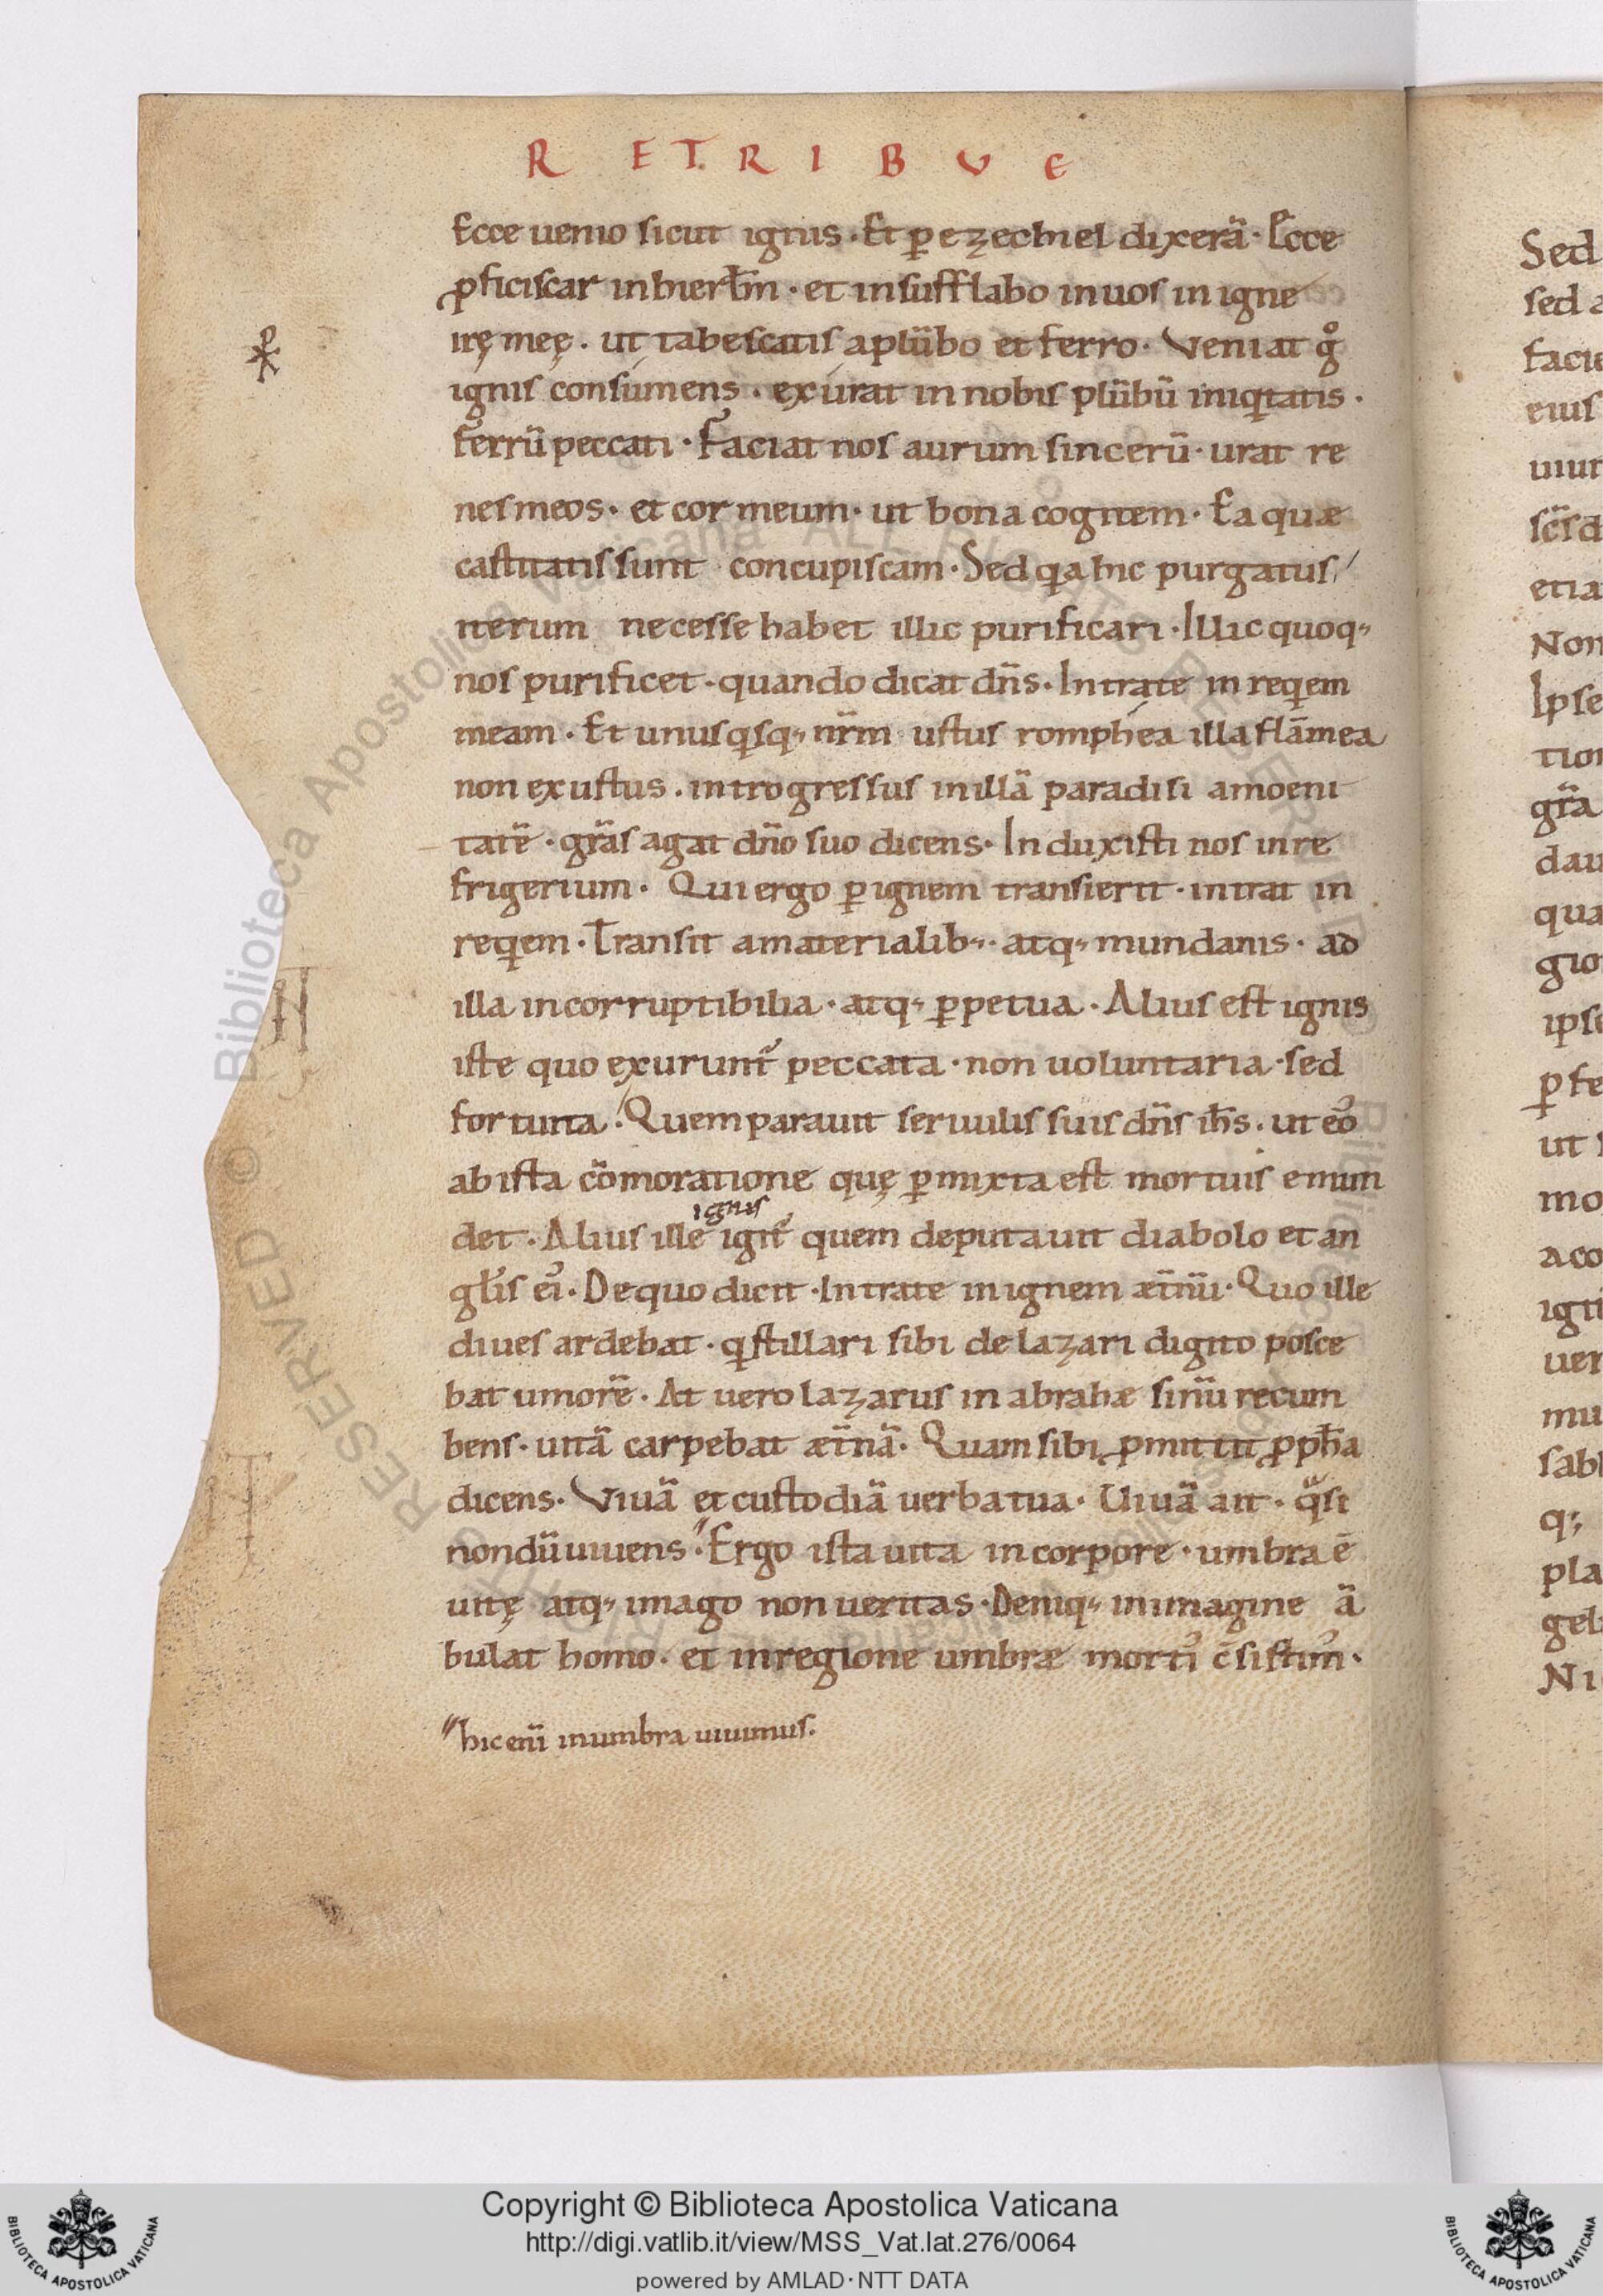 R E T R I B V E
Ecce uenio sicut ignis · Et ꝑ ezechiel dixerã · Ecce
ꝓficiscar in hierłm · et insufflabo in uos in igne
irę meę · ut tabescatis a plũbo et ferro · Veniat gͦ
ignis consúmens · exúrat in nobis plũbũ iniqͥtatis ·
ferrũ peccati · Faciat nos aurum sincerũ · urat re
nes meos · et cor meum · ut bona cogitem · Ea quæ
castitatis sunt concupiscam · Sed qͥa hic purgatus
iterum necesse habet illic purificari · Illic quoq;
nos purificet · quando dicat dñs · Intrate in reqͥem
meam · Et unusqͥsq; nr̃m ustus romphéa illa flãmea
non exustus · introgressus in illã paradisi amoeni
tatẽ · gr̃as agat dño suo dicens · Induxisti nos in re
frigerium · Qui ergo ꝑ ignem transierit · intrat in
reqͥem · Transit a materialib; · atq; mundanis · ad
illa incorruptibilia · atq; ꝑpetua · Alius est ignis
iste quo exurunt᷑ peccata · non uoluntaria · sed
fortuita · Quem parauit seruulis suis dñs ih̃s · ut eoꝰ
ab ista cõmoratione quę ꝑmixta est mortuis emun
ignis
det · Alius ille igit᷑ quem deputauit diabolo et an
gl̃is eiꝰ · De quo dicit · Intrate in ignem æt̃nũ · Quo ille
diues ardebat · qͥ stillari sibi de lazari digito posce
bat umorẽ · At uero lazarus in abrahæ sinũ recum
bens · uitã carpebat æt̃nã · Quam sibi ꝓmittit ꝓph̃a
dicens · Viuã et custodiã uerba tua · Uiuã ait · qᷓsi
nondũ uiuens · Ergo ista uita in corpore · umbra ẽ
uitę atq; imago non ueritas · Deniq; in imagine ã
bulat homo · et in regione umbræ mortiꝰ c̃sistimꝰ ·
hic eni᷑ in umbra uiuimus.
Sed
sed a
facie
eius
uiur
sc̃s d
etia
Non
Ipse
tion
gr̃a
dau
qua
gio
ipse
ꝑ fe
ut
mo
a co
igit
uer
mu
sab
q;
pla
geb
Ni
Copyright © Biblioteca Apostolica Vaticana
http://digi.vatlib.it/view/MSS_Vat.lat.276/0064
powered by AMLAD·NTT DATA
BIBLIOTECA APOSTOLICA VATICANA
BIBLIOTECA APOSTOLICA VATICANA